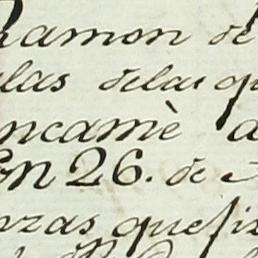 Ramon de
las delas qu
ncamè a
En 26. de
nzas que fiz